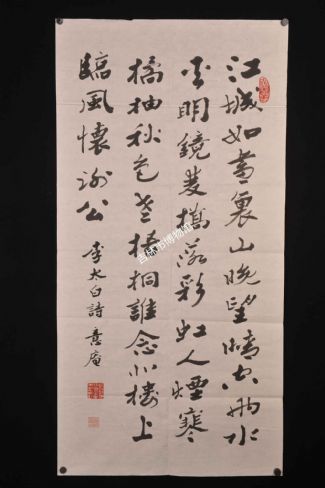 江城如畫裏山晚望晴空兩水
夾明鏡雙橋落彩虹人煙寒
橘柚秋色老梧桐誰念北樓上
臨風懷謝公
李太白詩 意庵
市博物馆